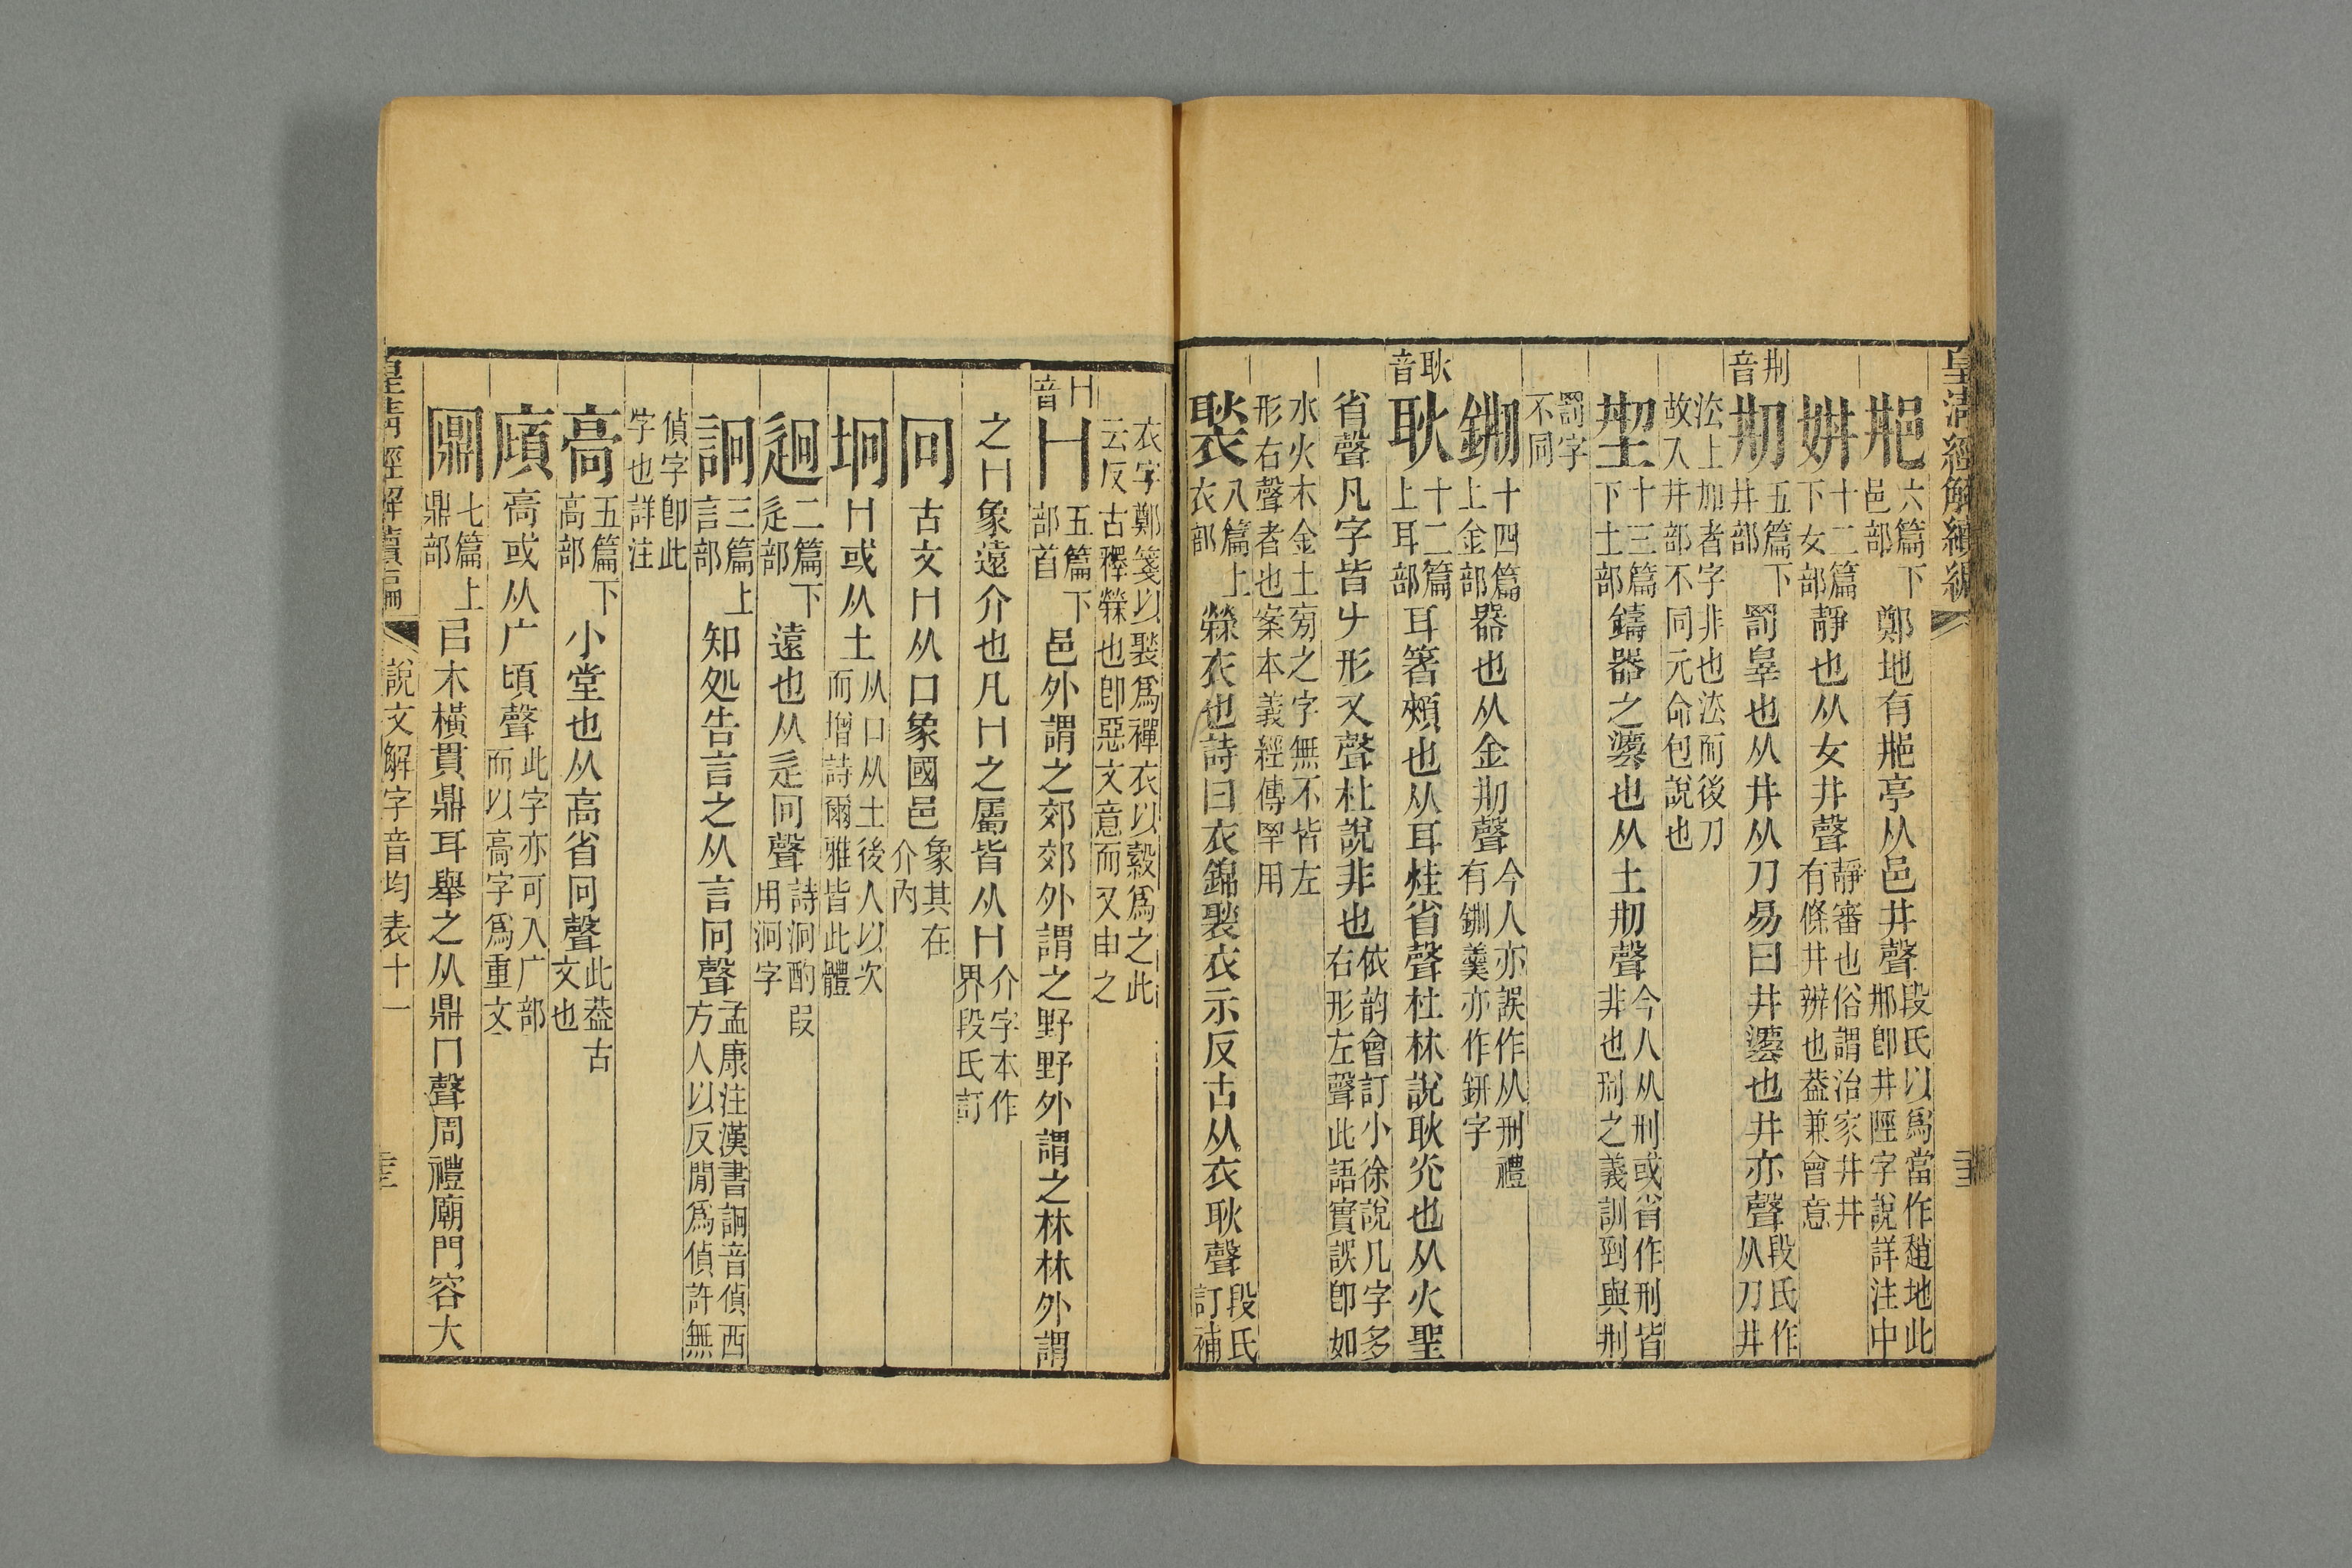 皇清經解續編
郉 六篇下邑部 鄭地有郉亭从邑井聲 段氏以爲當作趙地此郉卽井陘字說詳注中
妌 十二篇下女部 靜也从女井聲 靜審也俗謂治家井井有條井辨也葢兼會意
荆音
㓝 五篇下井部 罰辠也从井从刀易曰井灋也井亦聲 段氏作从刀井
法上加者字非也法而後刀故入井部不同元命包說也
型 十三篇下土部 鑄器之灋也从土㓝聲 今人从刑或省作刑皆非也刑之義訓剄與㓝
罰字不同
鉶 十四篇上金部 器也从金㓝聲 今人亦誤作从刑禮有鉶羹亦作鈃字
耿音
耿 十二篇上耳部 耳箸頰也从耳烓省聲杜林說耿光也从火聖
省聲凡字皆𠂇形又聲杜說非也 依韵會訂小徐說凡字多右形左聲此語實誤卽如
水火木金土㫄之字無不皆左形右聲者也案本義經傳罕用
褧 八篇上衣部 檾衣也詩曰衣錦褧衣示反古从衣耿聲 段氏訂補
衣字鄭箋以褧爲襌衣以縠爲之此云反古釋檾也卽惡文意而又申之
冂音
冂 五篇下部首 邑外謂之郊郊外謂之野野外謂之林林外謂
之冂象遠介也凡冂之屬皆从冂 介字本作界段氏訂
冋 古文冂从口象國邑 象其在介內
坰 冂或从土 从口从土後人以次而增詩爾雅皆此體
迥 二篇下辵部 遠也从辵冋聲 詩泂酌叚用泂字
詗 三篇上言部 知処告言之从言冋聲 孟康注漢書詗音偵西方人以反閒爲偵許無
偵字卽此字也詳注
高 五篇下高部 小堂也从高省冋聲 此葢古文也
廎 高或从广頃聲 此字亦可入广部而以高字爲重文
鼏 七篇上鼎部 㠯木橫貫鼎耳舉之从鼎冂聲周禮廟門容大
皇清經解續編 說文解字音均表十一